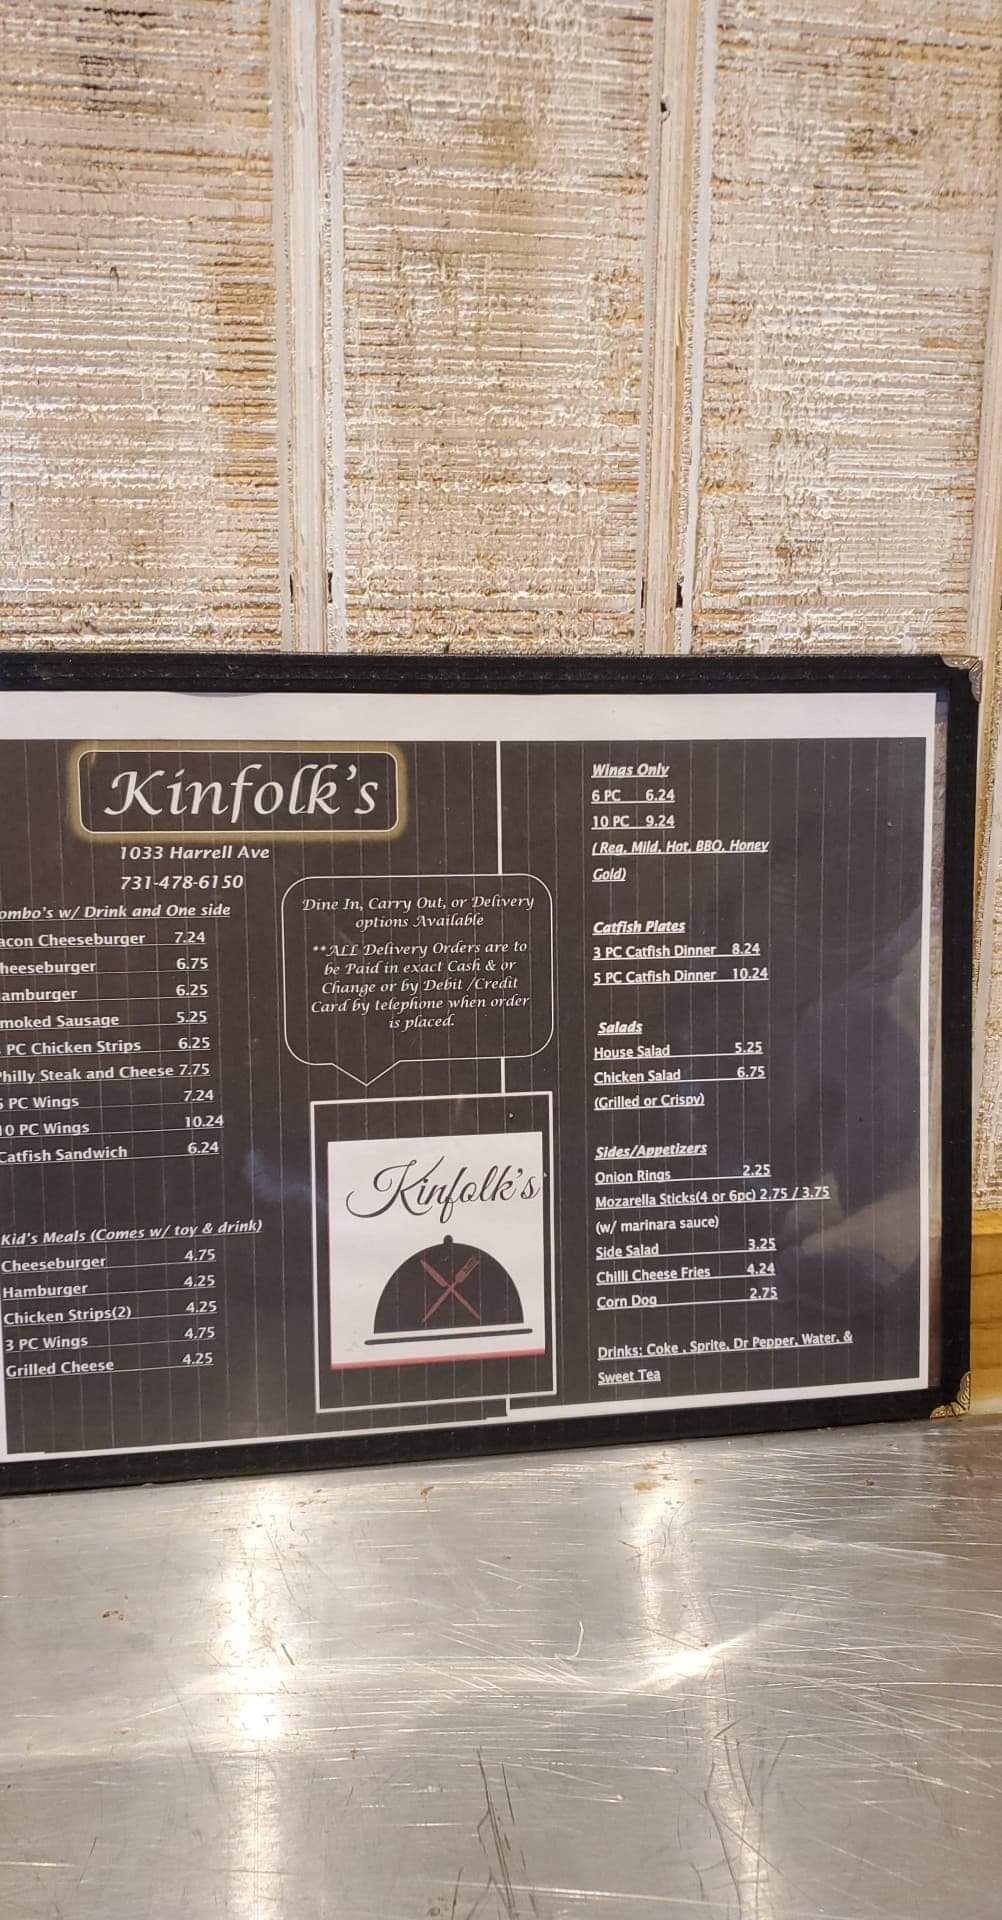 Kinfolk's
1033 Harrell Ave
731-478-6150
ombo's w/ Drink and One side
acon Cheeseburger 7.24
heeseburger 6.75
amburger 6.25
moked Sausage 5.25
PC Chicken Strips 6.25
Philly Steak and Cheese 7.75
6 PC Wings 7.24
10 PC Wings 10.24
Catfish Sandwich 6.24
Kid's Meals (Comes w/ toy & drink)
Cheeseburger 4.75
Hamburger 4.25
Chicken Strips(2) 4.25
3 PC Wings 4.75
Grilled Cheese 4.25
Dine In, Carry Out, or Delivery
options Available
**ALL Delivery Orders are to
be Paid in exact Cash & or
Change or by Debit /Credit
Card by telephone when order
is placed.
Kinfolk's
Wings Only
6 PC 6.24
10 PC 9.24
( Reg, Mild, Hot, BBQ, Honey
Gold)
Catfish Plates
3 PC Catfish Dinner 8.24
5 PC Catfish Dinner 10.24
Salads
House Salad 5.25
Chicken Salad 6.75
(Grilled or Crispy)
Sides/Appetizers
Onion Rings 2.25
Mozarella Sticks(4 or 6pc) 2.75 / 3.75
(w/ marinara sauce)
Side Salad 3.25
Chilli Cheese Fries 4.24
Corn Dog 2.75
Drinks: Coke , Sprite, Dr Pepper, Water, &
Sweet Tea